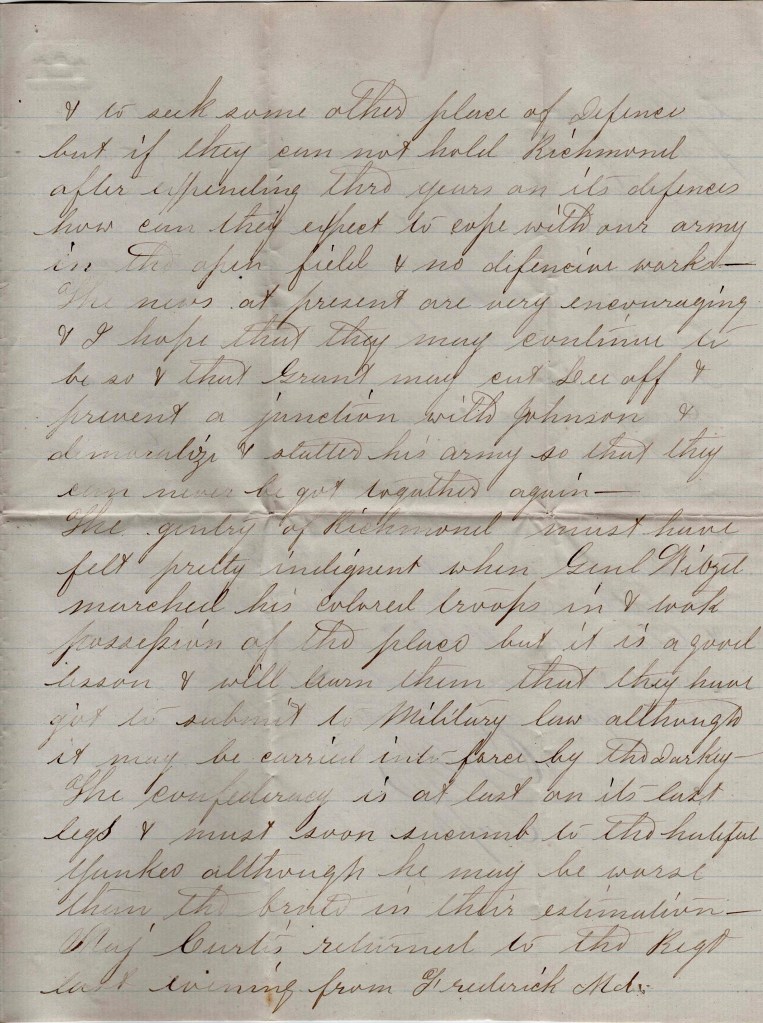 & to seek some other place of Defence
but if they can not hold Richmond
after expending three years on its defences
how can they expect to cope with our army
in the open field & no defencive works—
The news at present are very encouraging
& I hope that they may continue to
be so & that Grant may cut Lee off &
prevent a junction with Johnson &
demoralize & his army so that they
can never be got together again—
The gentry of Richmond must have
felt pretty indignent when Genl Witzel
marched his colored troops in & took
possession of the place but it is a good
lesson & will learn them that they have
got to submit to Military law although
it may be carried into force by the Darkey—
The confederacy is at last on its last
legs & must soon sucumb to the hateful
Yankee although he may be worse
than the brute in their estimation—
Maj Curtis returned to the Regt
last evening from Frederick Md.